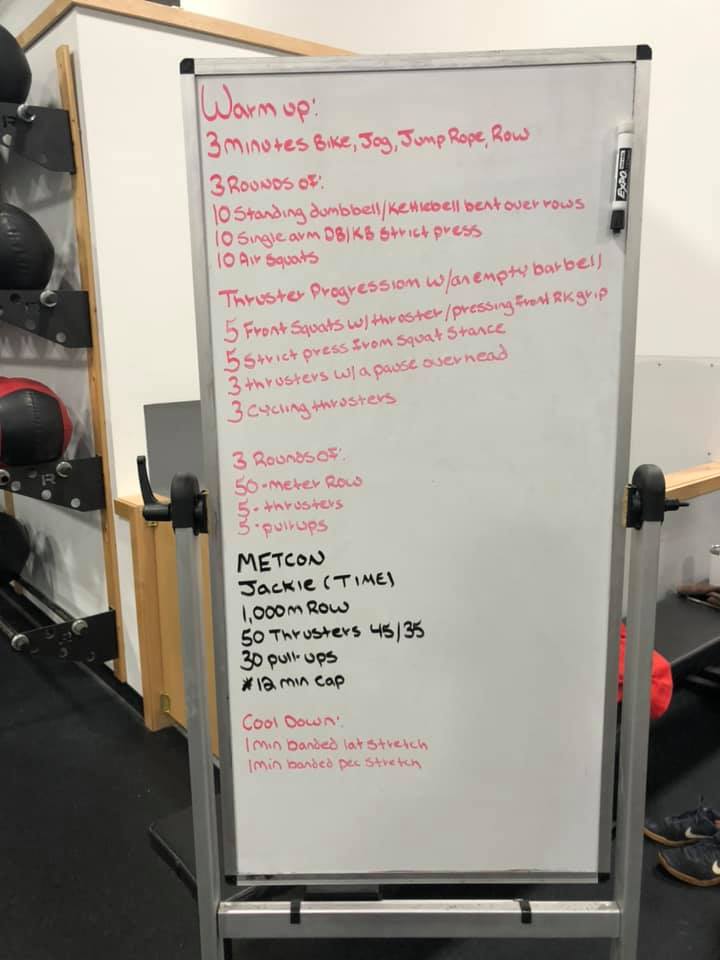 Warm up:
3 minutes Bike, Jog, Jump Rope, Row
3 Rounds of:
10 Standing dumbbell/Kettlebell bent over rows
10 Single arm DB/KB Strict press
10 Air Squats
Thruster Progression w/an empty barbell
5 Front Squats w/ thruster/pressing front RK grip
5 Strict press from Squat Stance
3 thrusters w/ a pause overhead
3 Cycling thrusters
3 Rounds Of:
50-meter Row
5-thrusters
5-pull-ups
METCON
Jackie (TIME)
1,000m Row
50 Thrusters 45/35
30 pull-ups
*12 min cap
Cool Down:
1min banded lat stretch
1min banded pec stretch
EXPO